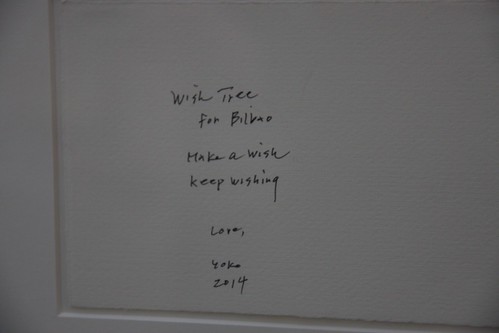 Wish Tree
for Bilbao
Make a wish
keep wishing
Love,
yoko
2014